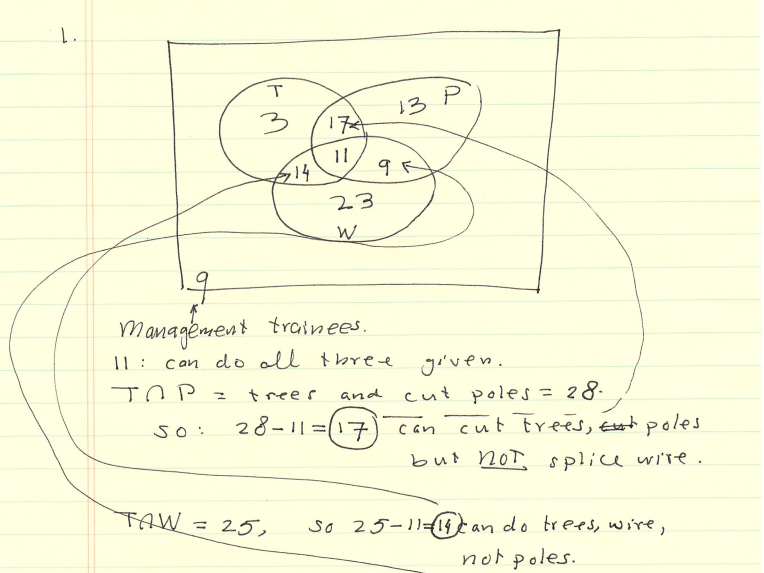 1.
T
3
17
13 P
11
14
9
23
W
9
Management trainees.
11: can do all three given.
T∩P = trees and cut poles = 28.
so: 28-11=17 can cut trees, cut poles
but NOT splice wire.
T∩W = 25, so 25-11=14 can do trees, wire,
not poles.